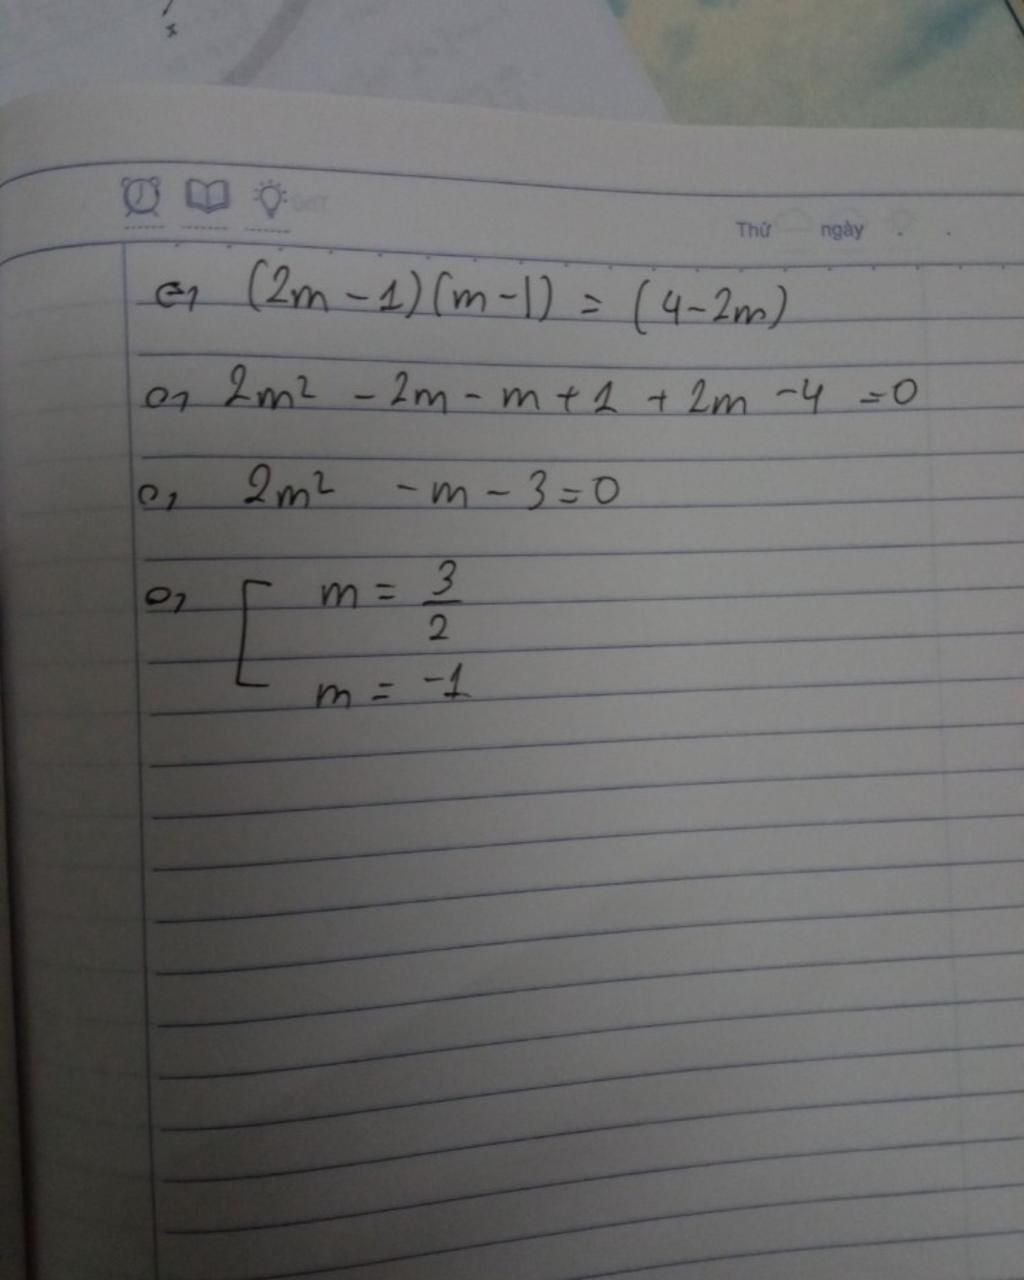 Thứ ngày
⇔ (2m - 1)(m - 1) = (4 - 2m)
⇔ 2m² - 2m - m + 1 + 2m - 4 = 0
⇔ 2m² - m - 3 = 0
⇔ [ m = 3/2
m = -1